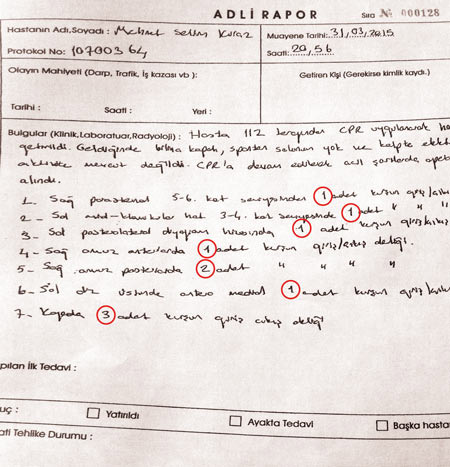 ADLİ RAPOR
Sıra № 000128
Hastanın Adı,Soyadı : Mehmet Selim Kiraz
Muayene Tarihi: 31/03/2015
Protokol No: 10700364
Saati: 20,56
Olayın Mahiyeti (Darp, Trafik, İş kazası vb ):
Getiren Kişi (Gerekirse kimlik kaydı.)
Tarihi : Saati : Yeri :
Bulgular (Klinik,Laboratuar,Radyoloji) : Hasta 112 tarafından CPR uygulanarak ha
getirildi. Geldiğinde bilinç kapalı, spontan solunum yok ve kalpte elekt
aktivite mevcut değildi. CPR'a devam edilerek acil şartlarda ope
alındı.
1- Sağ parasternal 5-6. kot seviyesinden 1 adet kurşun giriş/
2- Sol mid-klavikular hat 3-4. kot seviyesinde 1 adet " " "
3- Sol posterolateral diyafram hizasında 1 adet kurşun giriş/
4- Sağ omuz anteriorda 1 adet kurşun giriş/çıkış deliği.
5- Sağ omuz posteriorda 2 adet " " "
6- Sol diz üstünde antero medial 1 adet kurşun giriş/
7- Kafada 3 adet kurşun giriş çıkış deliği
pılan İlk Tedavi :
uç : Yatırıldı Ayakta Tedavi Başka hasta
ati Tehlike Durumu :